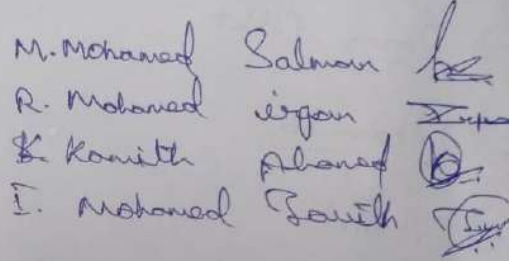 M. Mohamed Salman
R. Mohamed irgan
K. Kamith Ahamed
I. Mohamed Towith